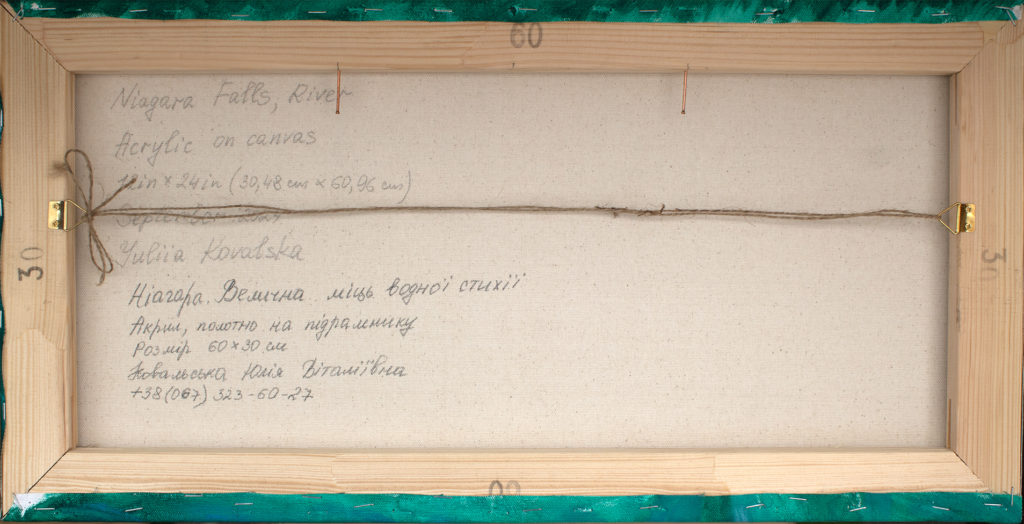 60
Niagara Falls, River
Acrylic on canvas
12in × 24in (30,48 cm × 60,96 cm)
September
Yuliia Kovalska
30
30
Ніагара. Велична міць водної стихії
Акрил, полотно на підрамнику
Розмір 60×30 см
Ковальська Юлія Віталіївна
+38(067) 323-60-27